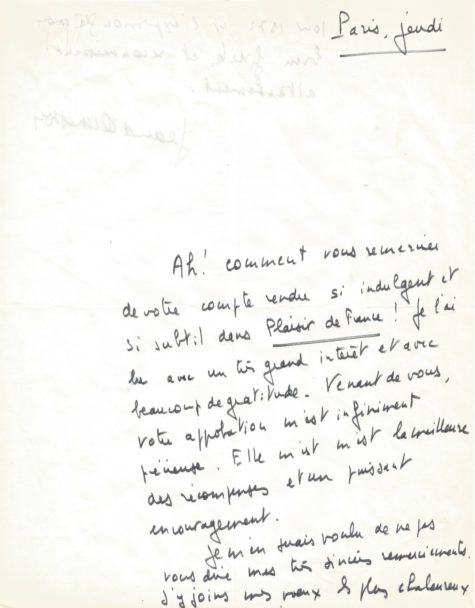 Paris, jeudi
Ah! comment vous remercier
de votre compte rendu si indulgent et
si subtil dans Plaisir de France ! Je l'ai
lu avec un très grand intérêt et avec
beaucoup de gratitude. Venant de vous,
votre approbation m'est infiniment
précieuse. Elle m'est m'est la meilleure
des récompenses et un puissant
encouragement.
Je m'en serais voulu de ne pas
vous dire mes très sincères remerciements.
J'y joins mes vœux les plus chaleureux